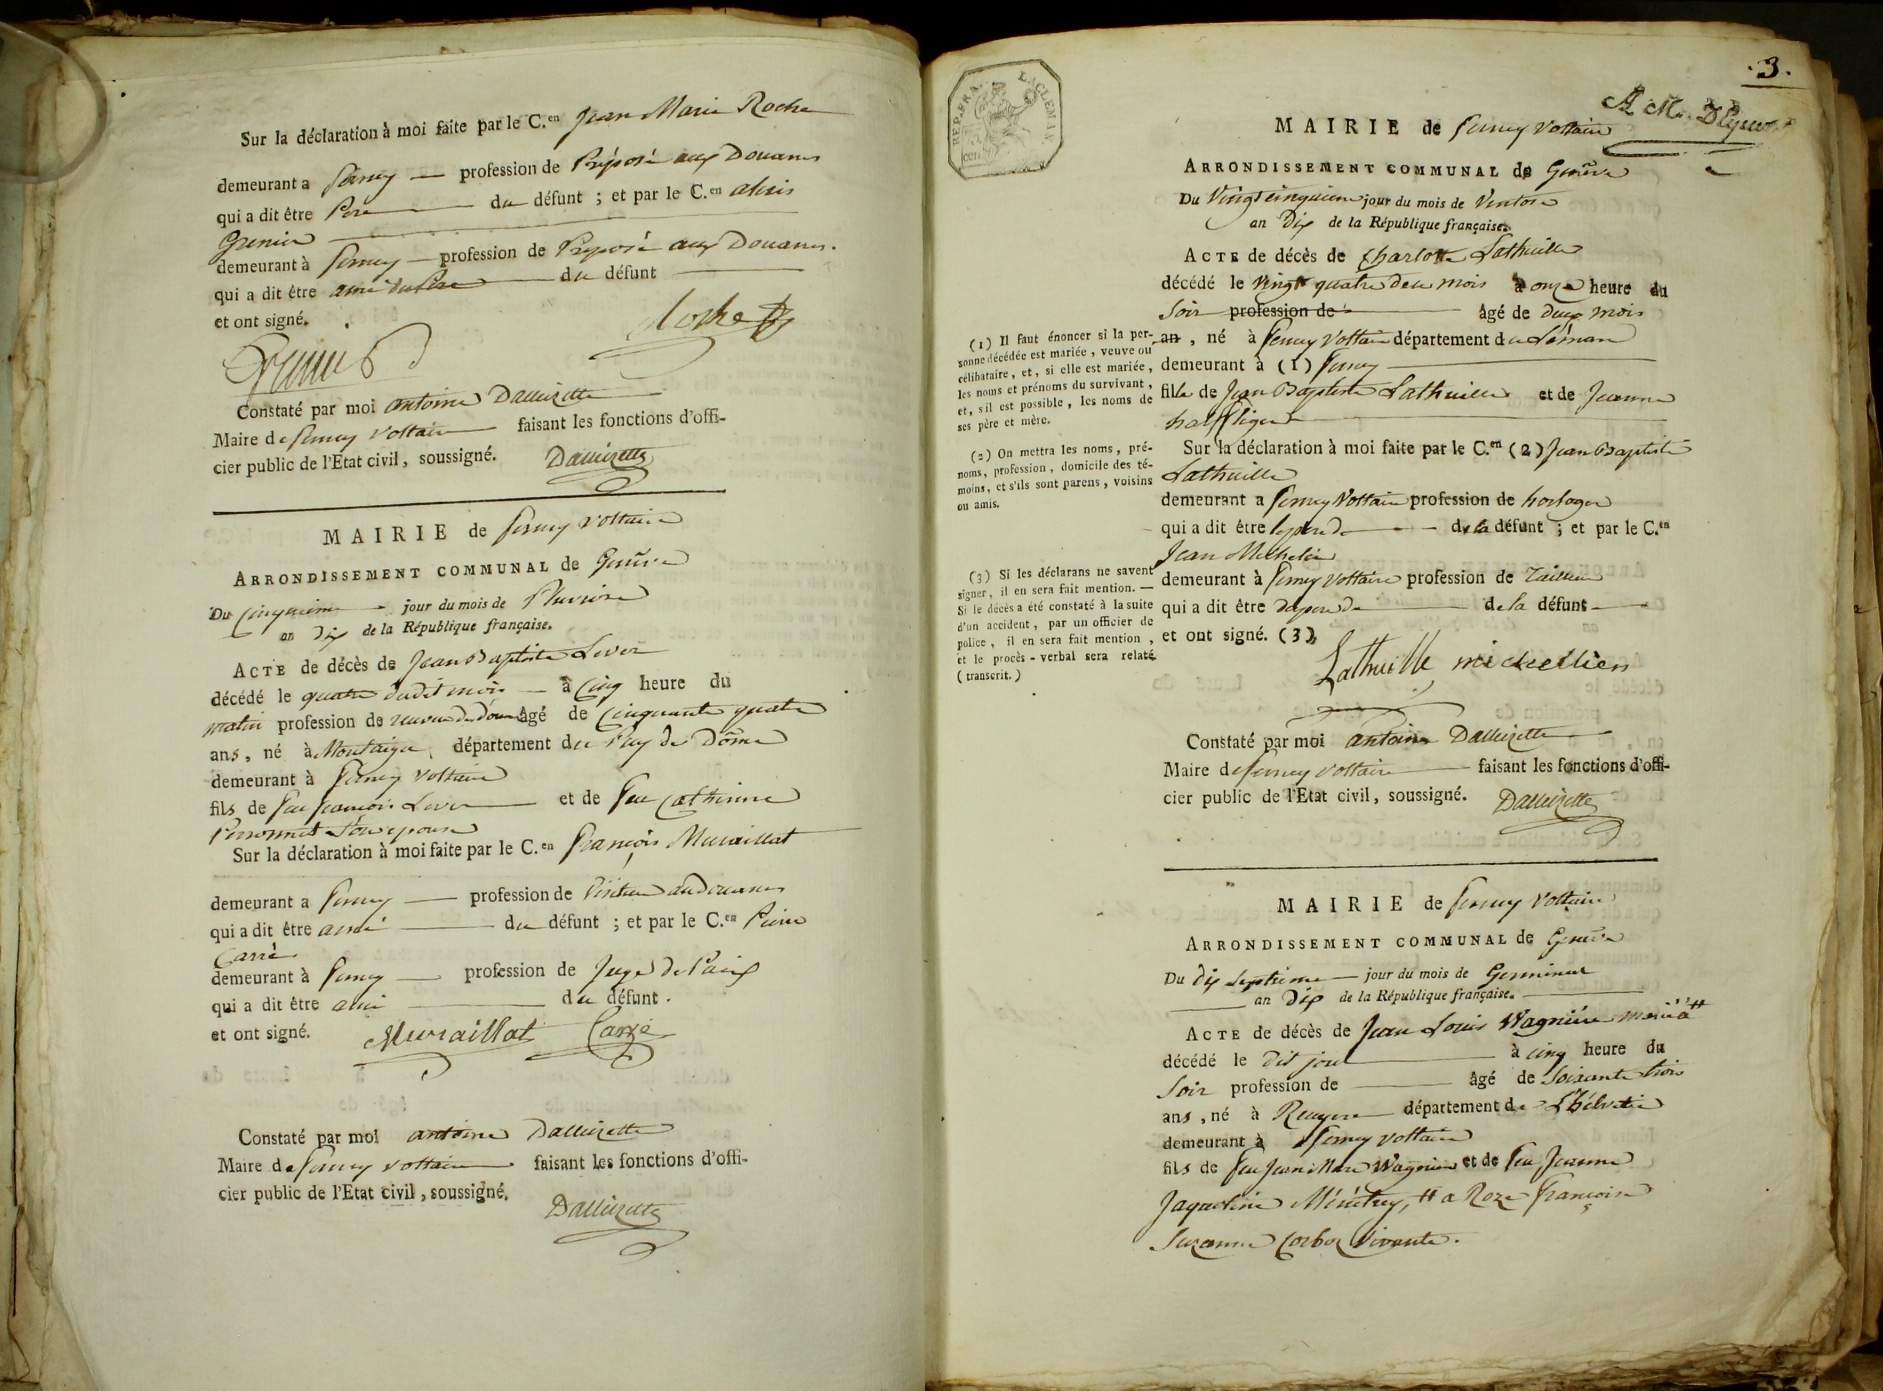 Sur la déclaration à moi faite par le C.en Jean Marie Roche
demeurant a ferney profession de Préposé aux Douanes
qui a dit être Père du défunt ; et par le C.en
Grenier
demeurant à ferney profession de Préposé aux Douanes.
qui a dit être ami du Père du défunt
et ont signé.
Roche
Constaté par moi antoine Dallizette
Maire de ferney voltaire faisant les fonctions d'offi-
cier public de l'Etat civil, soussigné. Dallizette
MAIRIE de ferney voltaire
ARRONDISSEMENT COMMUNAL de Genève
Du Cinquieme jour du mois de Pluviose
an dix de la République française.
ACTE de décès de Jean Baptiste Lever
décédé le quatre dudit mois à Cinq heure du
matin profession de âgé de Cinquante quatre
ans, né à Montaigu département du Puy de Dôme
demeurant à ferney voltaire
fils de feu francois Lever et de feu Catherine
son epouse
Sur la déclaration à moi faite par le C.en François Muraillat
demeurant a ferney profession de Visiteur au Douanes
qui a dit être ami du défunt ; et par le C.en Pierre
Carré
demeurant à ferney profession de Juge de Paix
qui a dit être ami du défunt.
et ont signé. Muraillat Carré
Constaté par moi antoine Dallizette
Maire de ferney voltaire faisant les fonctions d'offi-
cier public de l'Etat civil, soussigné.
Dallizette
.3.
REP. FRA.
MAIRIE de ferney voltaire
ARRONDISSEMENT COMMUNAL de Genève
Du Vingt cinquieme jour du mois de Ventose
an Dix de la République française.
ACTE de décès de Charlotte Lathuille
décédé le vingt quatre de ce mois à onze heure du
Soir profession de âgé de deux mois
an, né à ferney Voltaire département du Léman
demeurant à (1) ferney
fille de Jean Baptiste Lathuille et de Jeanne
Sur la déclaration à moi faite par le C.en (2) Jean Baptiste
Lathuille
demeurant a ferney Voltaire profession de horloger
qui a dit être le pere de la défunt ; et par le C.en
Jean Michelin
demeurant à ferney voltaire profession de Tailleur
qui a dit être de la défunt
et ont signé. (3)
Lathuille
(1) Il faut énoncer si la per-
sonne décédée est mariée, veuve ou
célibataire, et, si elle est mariée,
les noms et prénoms du survivant,
et, s'il est possible, les noms de
ses père et mère.
(2) On mettra les noms, pré-
noms, profession, domicile des té-
moins, et s'ils sont parens, voisins
ou amis.
(3) Si les déclarans ne savent
signer, il en sera fait mention. —
Si le décès a été constaté à la suite
d'un accident, par un officier de
police, il en sera fait mention,
et le procès-verbal sera relaté
(transcrit.)
Constaté par moi antoine Dallizette
Maire de ferney voltaire faisant les fonctions d'offi-
cier public de l'Etat civil, soussigné. Dallizette
MAIRIE de ferney Voltaire
ARRONDISSEMENT COMMUNAL de Genève
Du dix septieme jour du mois de Germinal
an Dix de la République française.
ACTE de décès de Jean Louis Wagnière marié #
décédé le dit jour à cinq heure du
Soir profession de âgé de Soixante trois
ans, né à département de L'helvetie
demeurant à ferney voltaire
fils de feu Jean Wagniere et de feu Jeanne
Jaqueline # a Roze francoise
Suzanne Corboz vivante.